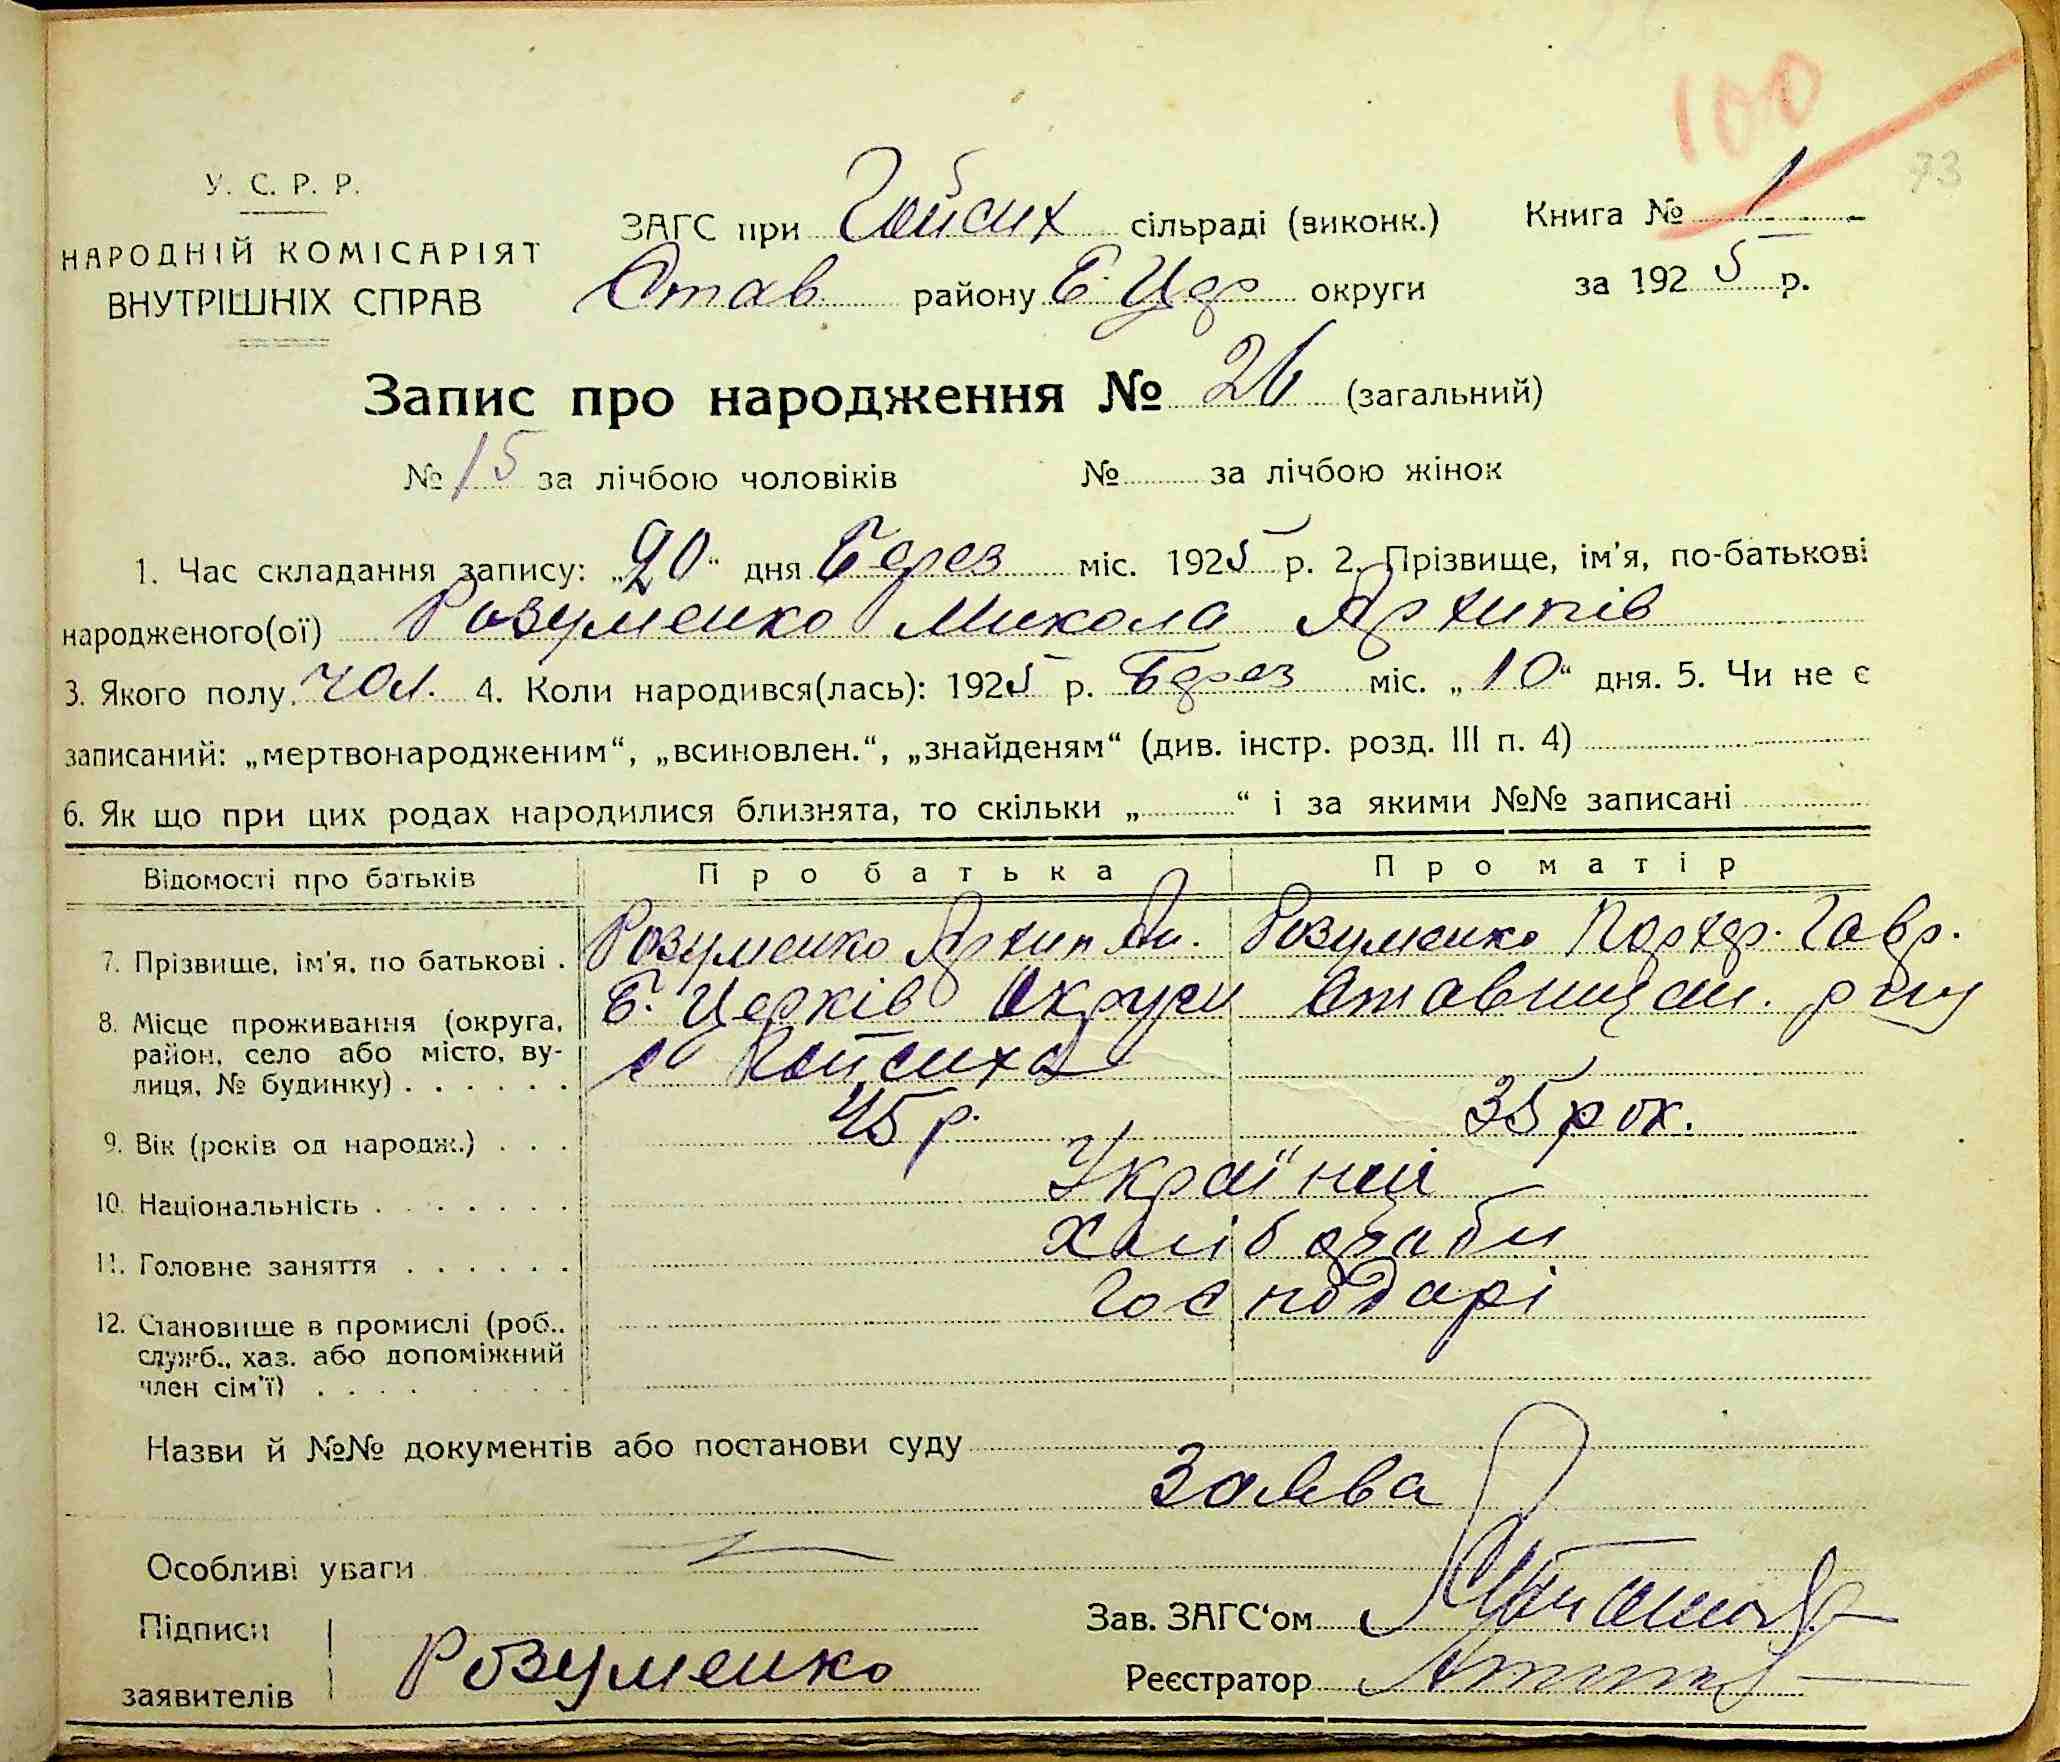 100
73
У. С. Р. Р.
НАРОДНІЙ КОМІСАРІЯТ
ВНУТРІШНІХ СПРАВ
ЗАГС при Гойсих сільраді (виконк.)
Став району Б. Цер округи
Книга № 1
за 1925 р.
Запис про народження № 26 (загальний)
№ 15 за лічбою чоловіків № за лічбою жінок
1. Час складання запису: „20“ дня Берез міс. 1925 р. 2. Прізвище, ім'я, по-батькові
народженого(ої) Розуменко Микола Архипів
3. Якого полу. чол. 4. Коли народився(лась): 1925 р. Берез міс. „10“ дня. 5. Чи не є
записаний: „мертвонародженим“, „всиновлен.“, „знайденям“ (див. інстр. розд. III п. 4)
6. Як що при цих родах народилися близнята, то скільки „ “ і за якими №№ записані
Відомості про батьків Про батька Про матір
7. Прізвище, ім'я, по батькові . Розуменко Архип Ан. Розуменко Порхер. Гавр.
8. Місце проживання (округа, район, село або місто, вулиця, № будинку) Б. Церків Округи Ставищан. р-ну
с Гойсиха
9. Вік (років од народж.) 45 р. 35 рок.
10. Національність Україн
11. Головне заняття Хліброби
12. Становище в промислі (роб., служб., хаз. або допоміжний член сім'ї) Господарі
Назви й №№ документів або постанови суду
Заява
Особливі уваги
Підписи
заявителів Розуменко
Зав. ЗАГС‘ом
Реєстратор